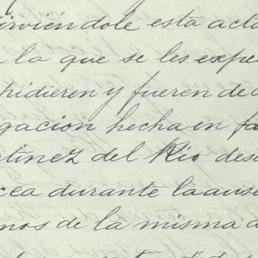 irviéndole esta acta
la que se les expe
pidieren y fueren de
gacion hecha en fa
rtinez del Rio des
cea durante la ause
nos de la misma